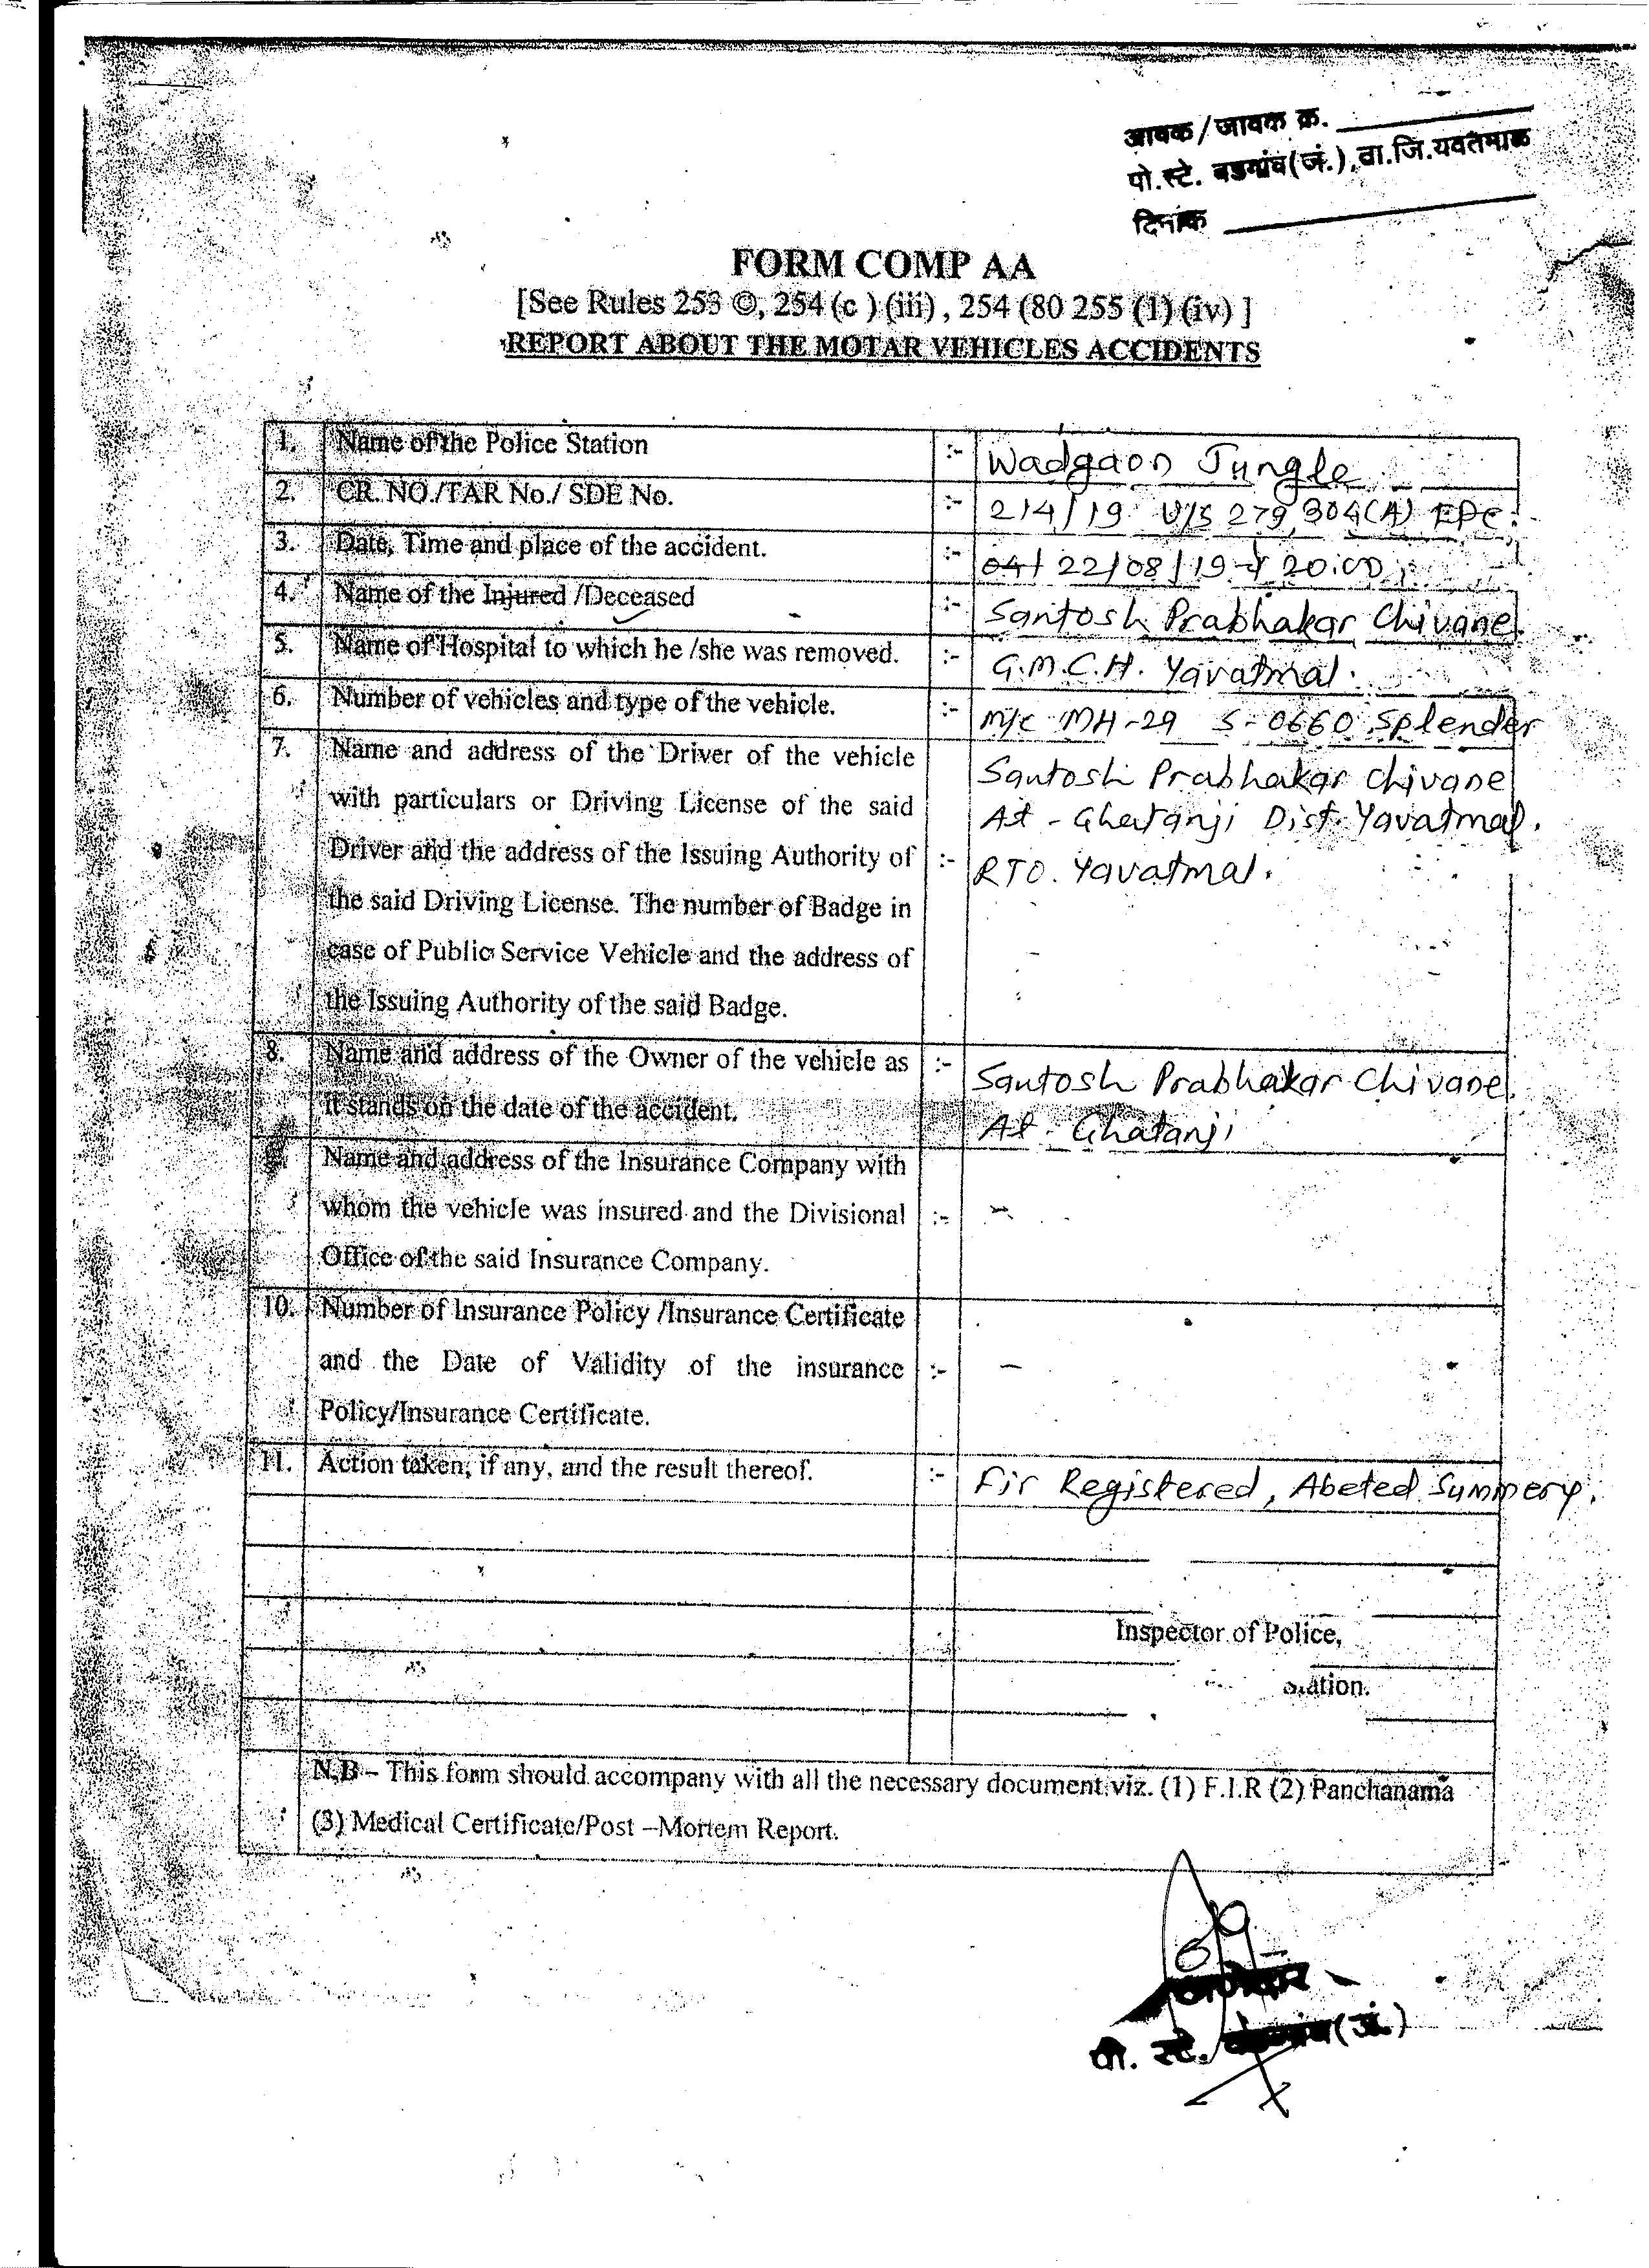 आवक/जावक क्र.
पो.स्टे. वडगांव(जं.),वा.जि.यवतमाळ
दिनांक
FORM COMP AA
[See Rules 253 ©, 254 (c ) (iii) , 254 (80 255 (1) (iv) ]
REPORT ABOUT THE MOTAR VEHICLES ACCIDENTS
1. Name of the Police Station :- Wadgaon Jungle
2. CR. NO./TAR No./ SDE No. :- 214/19 U/S 279, 304(A) IPC.
3. Date, Time and place of the accident. :- 22/08/19 20.00
4. Name of the Injured /Deceased :- Santosh Prabhakar Chivane.
5. Name of Hospital to which he /she was removed. :- G.M.C.H. Yavatmal.
6. Number of vehicles and type of the vehicle. :- M/c MH-29 S-0660 Splender
7. Name and address of the Driver of the vehicle Santosh Prabhakar Chivane
with particulars or Driving License of the said At - Ghatanji Dist. Yavatmal.
Driver and the address of the Issuing Authority of :- RTO. Yavatmal.
the said Driving License. The number of Badge in
case of Public Service Vehicle and the address of
the Issuing Authority of the said Badge.
8. Name and address of the Owner of the vehicle as :- Santosh Prabhakar Chivane.
it stands on the date of the accident. At - Ghatanji
Name and address of the Insurance Company with
whom the vehicle was insured and the Divisional :- -
Office of the said Insurance Company.
10. Number of Insurance Policy /Insurance Certificate
and the Date of Validity of the insurance :- -
Policy/Insurance Certificate.
11. Action taken, if any, and the result thereof. :- Fir Registered, Abeted Summery.
Inspector of Police,
N.B – This form should accompany with all the necessary document viz. (1) F.I.R (2) Panchanama
(3) Medical Certificate/Post –Mortem Report.
पो. स्टे. (जं.)